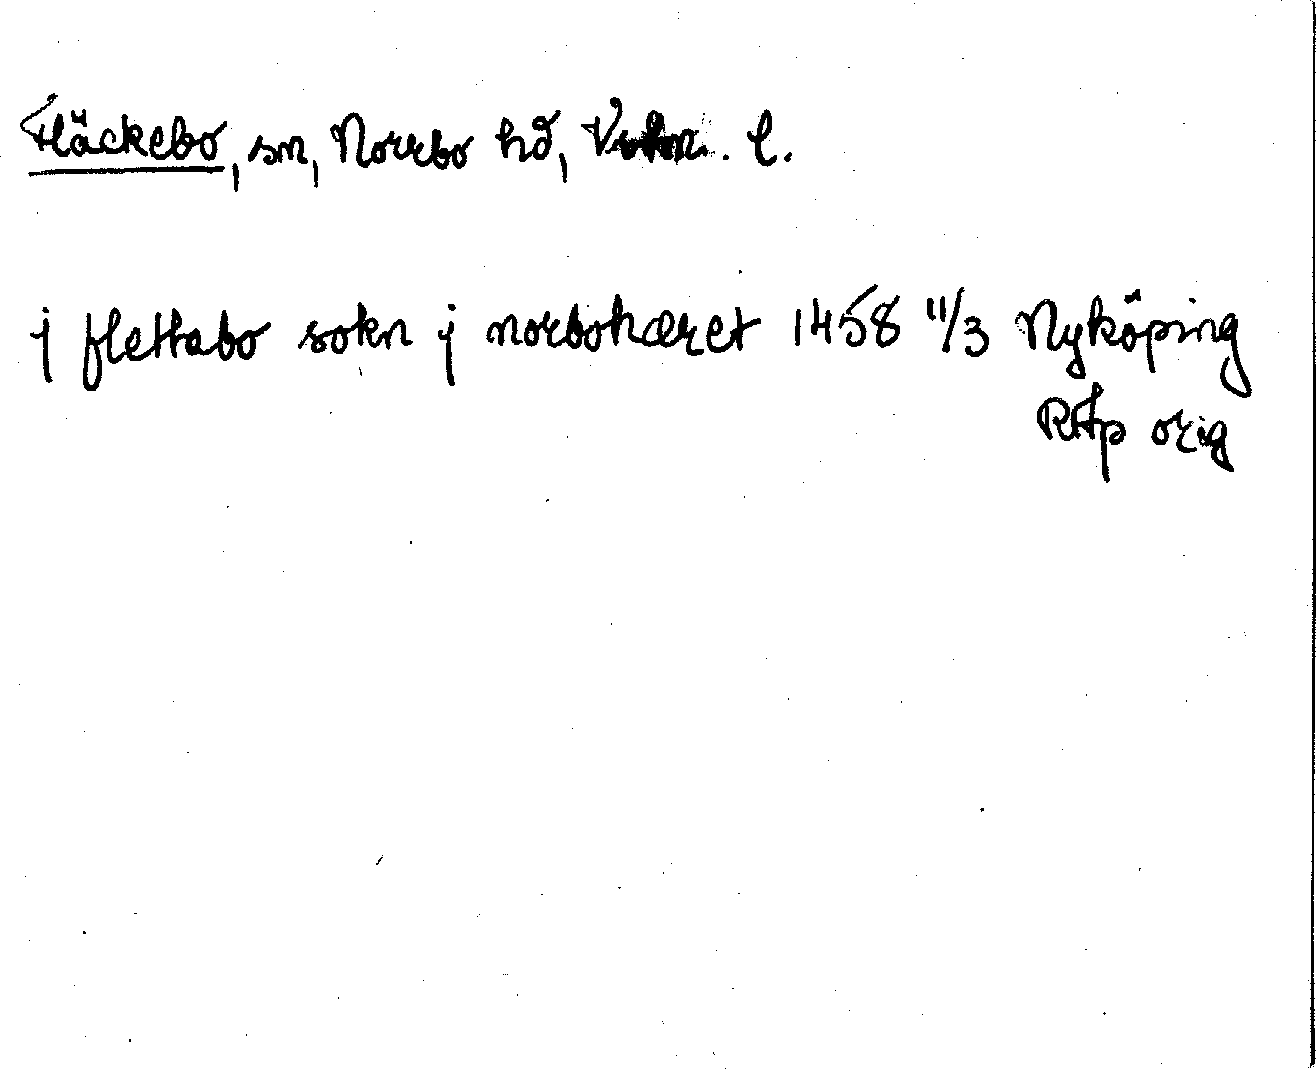 Fläckebo, sn, Norrbo hd, Vstm. l.
j flettabo sokn j norbohæret 1458 11/3 Nyköping
RAp orig